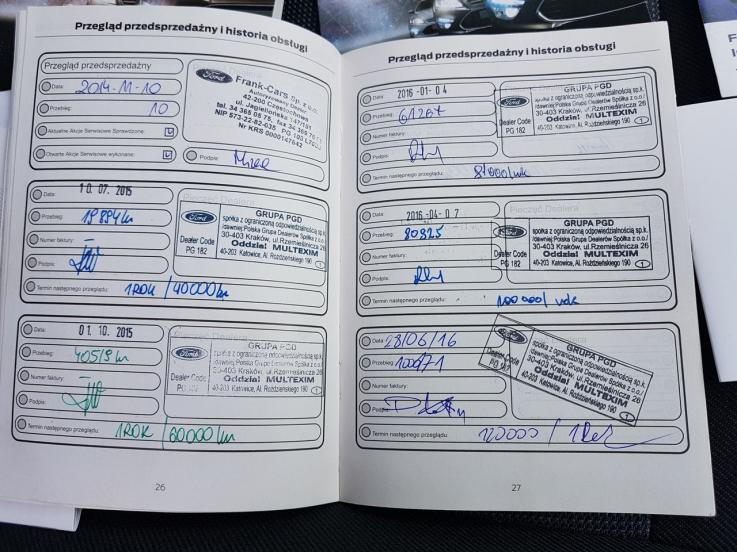 Przegląd przedsprzedażny i historia obsługi
Przegląd przedsprzedażny
Data: 2014-11-10
Przebieg: 10
Aktualne Akcje Serwisowe Sprawdzone:
Otwarte Akcje Serwisowe wykonane:
Ford
Frank-Cars Sp. z o.o.
Autoryzowany Dealer
42-200 Częstochowa
ul. Jagiellońska 147/151
NIP 573-22-82-035
Nr KRS 0000147642
Podpis:
Data: 10. 07. 2015
Przebieg: 19884 km
Numer faktury:
Podpis:
Termin następnego przeglądu: 1 ROK / 40000 km
Pieczęć Dealera
Ford
Dealer Code
PG 182
GRUPA PGD
spółka z ograniczoną odpowiedzialnością sp.k.
/dawniej Polska Grupa Dealerów Spółka z o.o./
30-403 Kraków, ul.Rzemieślnicza 26
Oddział MULTEXIM
40-203 Katowice, Al. Roździeńskiego 190 1
Data: 01. 10. 2015
Przebieg: 40519 km
Numer faktury:
Podpis:
Termin następnego przeglądu: 1 ROK / 60000 km
Pieczęć Dealera
Ford
Dealer Code
GRUPA PGD
spółka z ograniczoną odpowiedzialnością sp.k.
/dawniej Polska Grupa Dealerów Spółka z o.o./
30-403 Kraków, ul.Rzemieślnicza 26
Oddział MULTEXIM
40-203 Katowice, Al. Roździeńskiego 190 1
26
Przegląd przedsprzedażny i historia obsługi
Data: 2016 -01- 04
Przebieg: 61267
Numer faktury:
Podpis:
Termin następnego przeglądu:
Ford
Dealer Code
PG 182
spółka z ograniczoną odpowiedzialnością sp.k.
/dawniej Polska Grupa Dealerów Spółka z o.o./
30-403 Kraków, ul.Rzemieślnicza 26
Oddział MULTEXIM
40-203 Katowice, Al. Roździeńskiego 190 1
Data: 2016 -04- 07
Przebieg: 80825
Numer faktury:
Podpis:
Termin następnego przeglądu: 100000/rok
Pieczęć Dealera
Ford
Dealer Code
PG 182
GRUPA PGD
spółka z ograniczoną odpowiedzialnością sp.k.
/dawniej Polska Grupa Dealerów Spółka z o.o./
30-403 Kraków, ul.Rzemieślnicza 26
Oddział MULTEXIM
40-203 Katowice, Al. Roździeńskiego 190 1
Data: 28/06/16
Przebieg: 100671
Numer faktury:
Podpis:
Termin następnego przeglądu: 120000 / 1Rok
Ford
Dealer Code
GRUPA PGD
spółka z ograniczoną odpowiedzialnością sp.k.
/dawniej Polska Grupa Dealerów Spółka z o.o./
30-403 Kraków, ul.Rzemieślnicza 26
Oddział MULTEXIM
40-203 Katowice, Al. Roździeńskiego 190 1
27